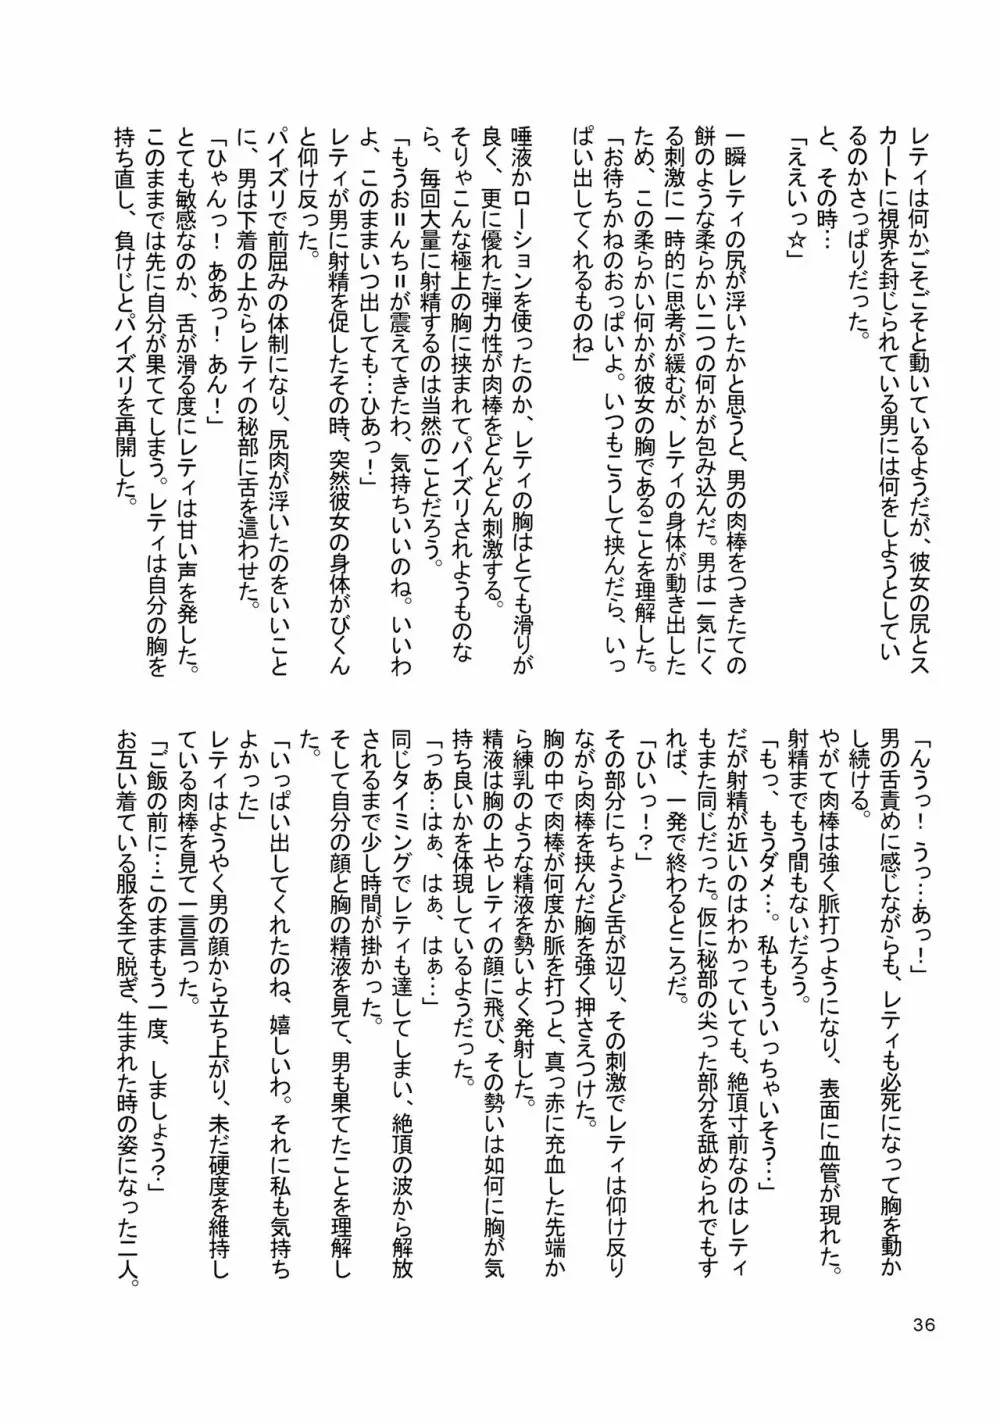 レティは何かごそごそと動いているようだが、彼女の尻とス
カートに視界を封じられている男には何をしようとしてい
るのかさっぱりだった。
と、その時…
「ええいっ☆」
一瞬レティの尻が浮いたかと思うと、男の肉棒をつきたての
餅のような柔らかい二つの何かが包み込んだ。男は一気にく
る刺激に一時的に思考が緩むが、レティの身体が動き出した
ため、この柔らかい何かが彼女の胸であることを理解した。
「お待ちかねのおっぱいよ。いつもこうして挟んだら、いっ
ぱい出してくれるものね」
唾液かローションを使ったのか、レティの胸はとても滑りが
良く、更に優れた弾力性が肉棒をどんどん刺激する。
そりゃこんな極上の胸に挟まれてパイズリされようものな
ら、毎回大量に射精するのは当然のことだろう。
「もうお＝んち＝が震えてきたわ、気持ちいいのね。いいわ
よ、このままいつ出しても…ひあっ！」
レティが男に射精を促したその時、突然彼女の身体がびくん
と仰け反った。
パイズリで前屈みの体制になり、尻肉が浮いたのをいいこと
に、男は下着の上からレティの秘部に舌を這わせた。
「ひゃんっ！ああっ！あん！」
とても敏感なのか、舌が滑る度にレティは甘い声を発した。
このままでは先に自分が果ててしまう。レティは自分の胸を
持ち直し、負けじとパイズリを再開した。
「んうっ！うっ…あっ！」
男の舌責めに感じながらも、レティも必死になって胸を動か
し続ける。
やがて肉棒は強く脈打つようになり、表面に血管が現れた。
射精までもう間もないだろう。
「もっ、もうダメ…。私ももういっちゃいそう…」
だが射精が近いのはわかっていても、絶頂寸前なのはレティ
もまた同じだった。仮に秘部の尖った部分を舐められでもす
れば、一発で終わるところだ。
「ひいっ！？」
その部分にちょうど舌が辺り、その刺激でレティは仰け反り
ながら肉棒を挟んだ胸を強く押さえつけた。
胸の中で肉棒が何度か脈を打つと、真っ赤に充血した先端か
ら練乳のような精液を勢いよく発射した。
精液は胸の上やレティの顔に飛び、その勢いは如何に胸が気
持ち良いかを体現しているようだった。
「っあ…はぁ、はぁ、はぁ…」
同じタイミングでレティも達してしまい、絶頂の波から解放
されるまで少し時間が掛かった。
そして自分の顔と胸の精液を見て、男も果てたことを理解し
た。
「いっぱい出してくれたのね、嬉しいわ。それに私も気持ち
よかった」
レティはようやく男の顔から立ち上がり、未だ硬度を維持し
ている肉棒を見て一言言った。
「ご飯の前に…このままもう一度、しましょう？」
お互い着ている服を全て脱ぎ、生まれた時の姿になった二人。
36